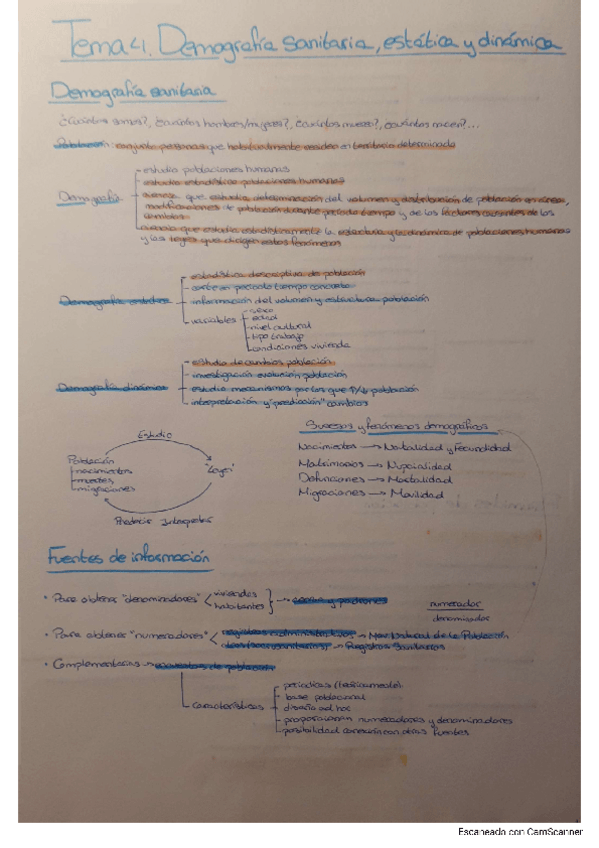 Tema 4. Demografía sanitaria, estática y dinámica
Demografía sanitaria
¿Cuántos somos?, ¿cuántos hombres/mujeres?, ¿cuántos mueren?, ¿cuántos nacen?...
Población: conjunto personas que habitualmente residen en territorio determinado
estudio poblaciones humanas
estudio estadístico poblaciones humanas
Demografía
ciencia que estudia determinación del volumen y distribución de población en áreas,
modificaciones de población durante período tiempo y de los factores causantes de los
cambios
ciencia que estudia estadísticamente la estructura y la dinámica de poblaciones humanas
y las leyes que dirigen estos fenómenos
estadística descriptiva de población
corte en período tiempo concreto
Demografía estática
información del volumen y estructura población
variables
sexo
edad
nivel cultural
tipo trabajo
condiciones vivienda
estudio de cambios población
investigación evolución población
Demografía dinámica
estudia mecanismos por los que población
interpretación y "predicación" cambios
Sucesos y fenómenos demográficos
Estudio
Nacimientos → Natalidad y Fecundidad
Población
nacimientos
muertes
migraciones
"Leyes"
Matrimonios → Nupcialidad
Defunciones → Mortalidad
Migraciones → Movilidad
Predecir Interpretar
Fuentes de información
• Para obtener "denominadores"
viviendas
habitantes
→ censos y padrones
numerador
denominador
• Para obtener "numeradores"
registros administrativos → Mov. Natural de la Población
→ Registros Sanitarios
• Complementarias → encuestas de población
características
periódicas (teóricamente)
base poblacional
diseño ad hoc
proporcionan numeradores y denominadores
posibilidad conexión con otras fuentes
Escaneado con CamScanner